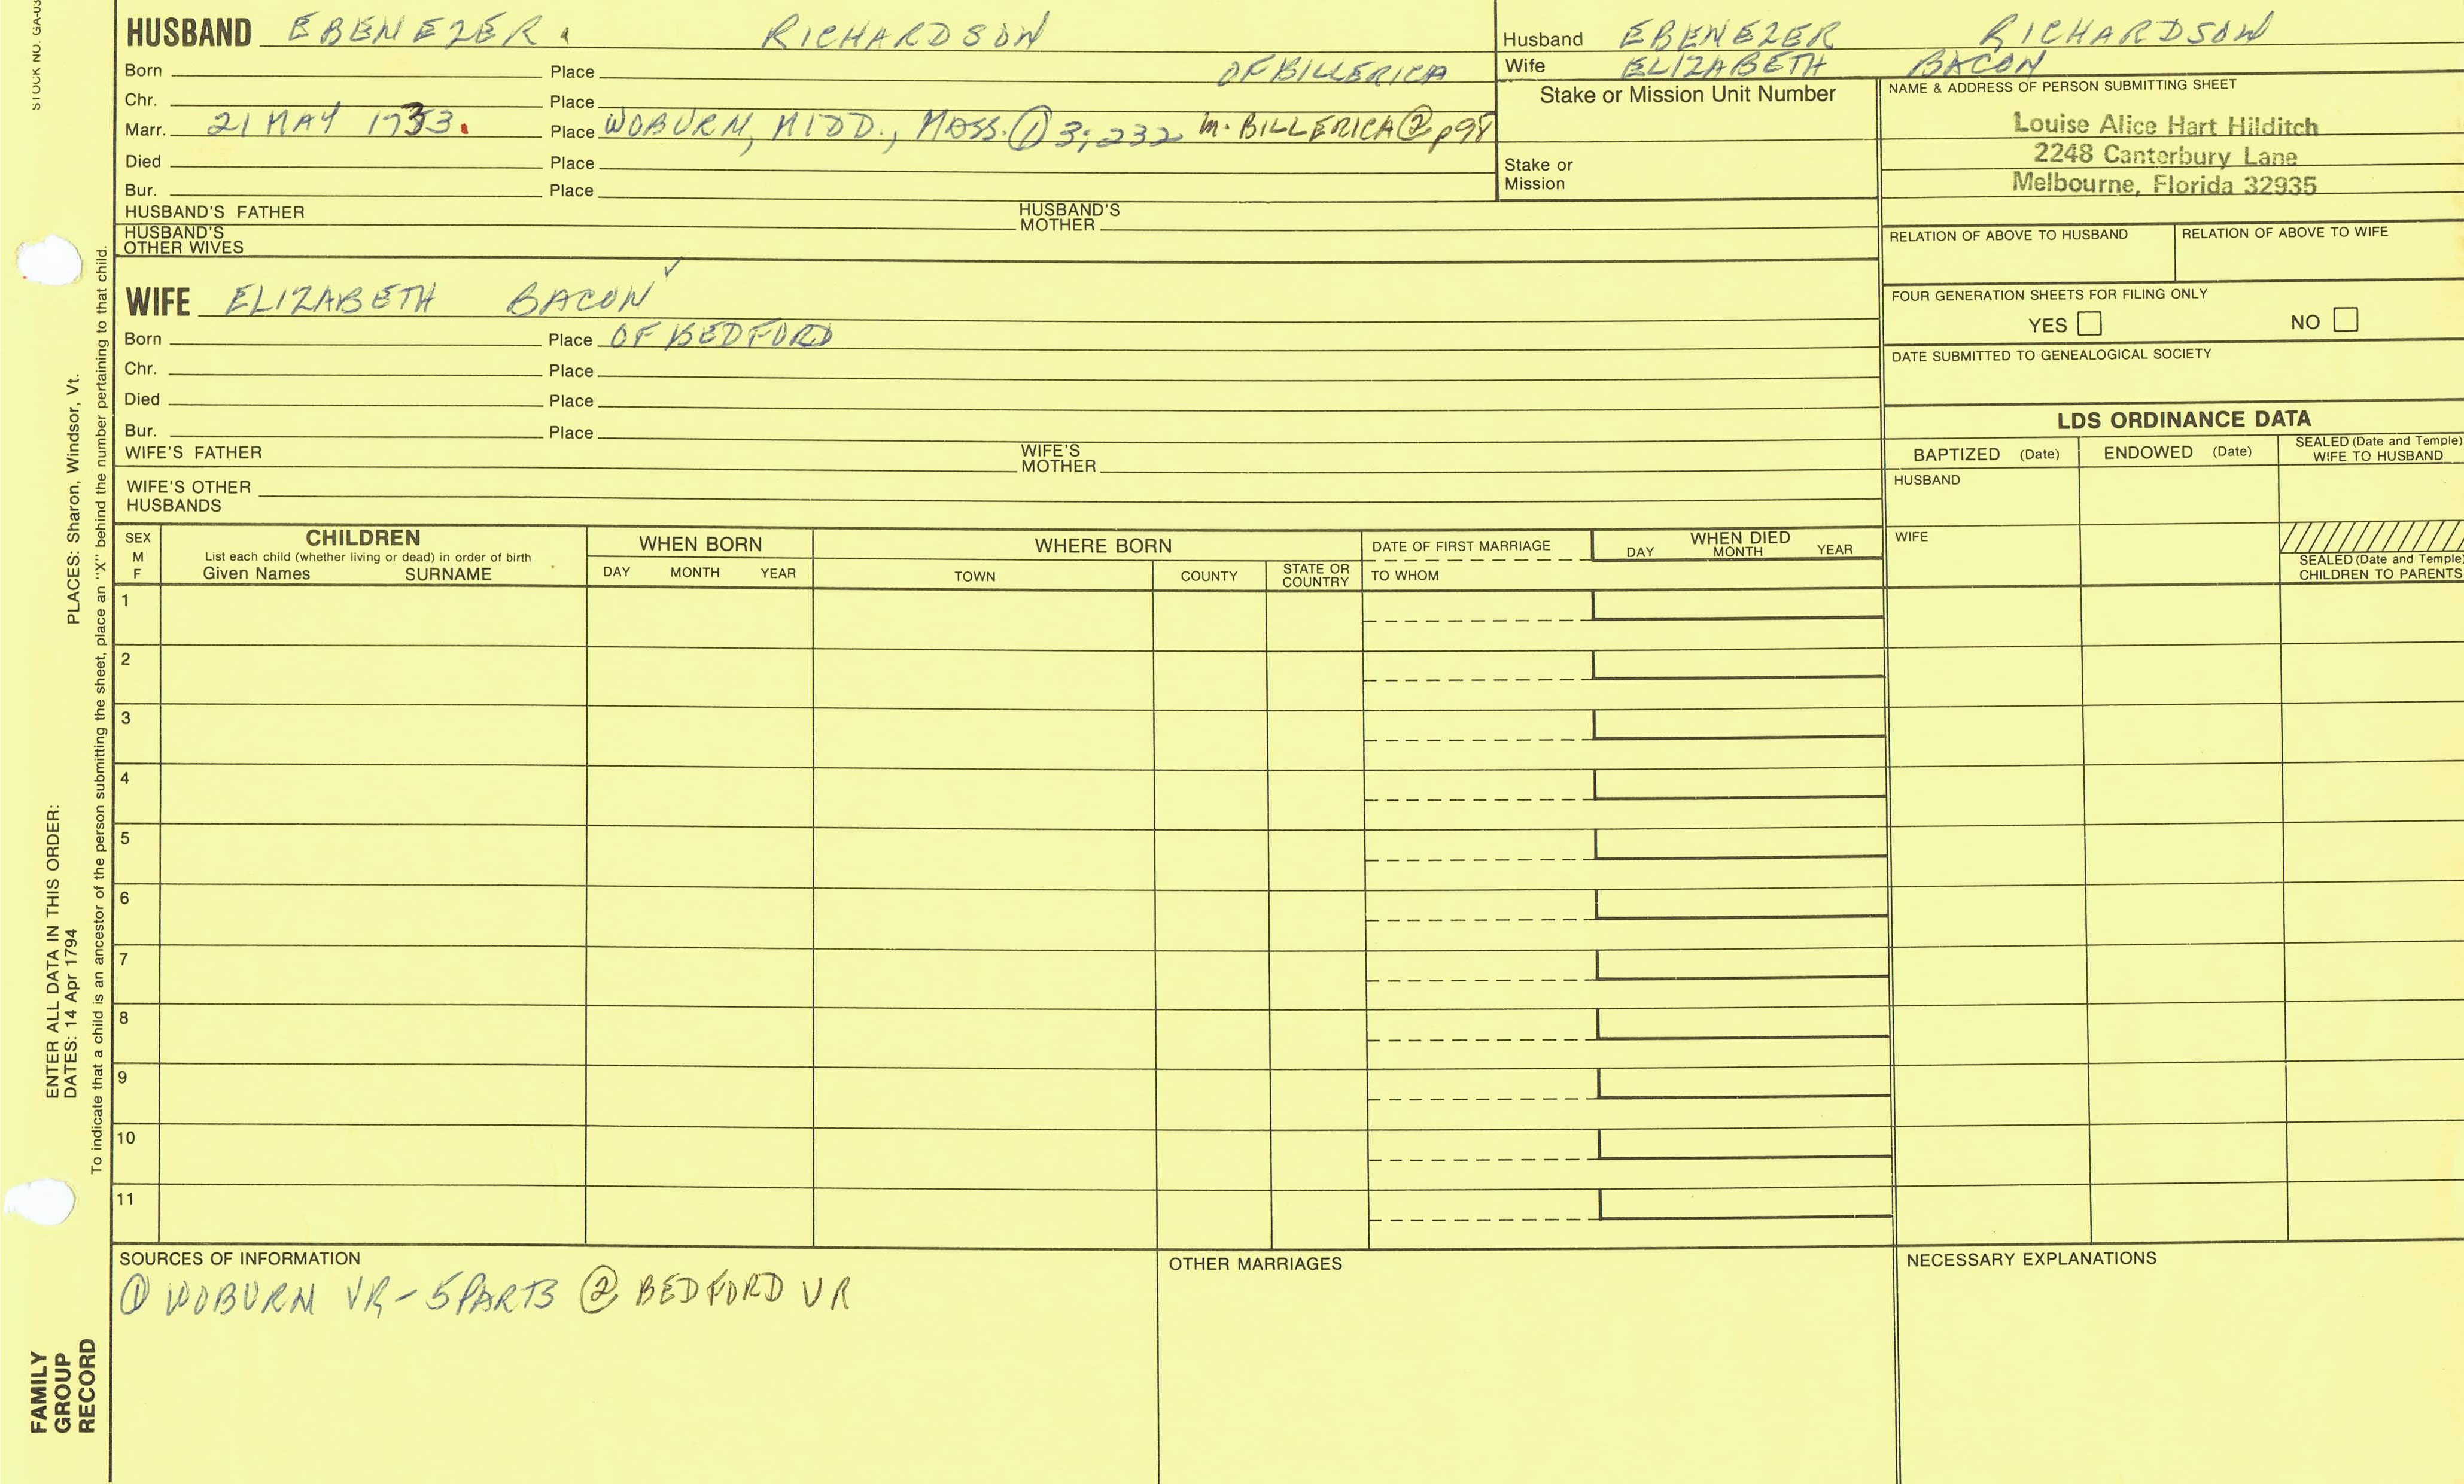 STOCK NO. GA-03
HUSBAND EBENEZER. RICHARDSON
Born Place OF BILLERICA
Chr. Place
Marr. 21 MAY 1733. Place WOBURN, MIDD., MASS. ① 3; 232 m. BILLERICA ② p98
Died Place
Bur. Place
HUSBAND'S FATHER HUSBAND'S MOTHER
HUSBAND'S OTHER WIVES
Husband EBENEZER RICHARDSON
Wife ELIZABETH BACON
Stake or Mission Unit Number
Stake or
Mission
NAME & ADDRESS OF PERSON SUBMITTING SHEET
Louise Alice Hart Hilditch
2248 Canterbury Lane
Melbourne, Florida 32935
RELATION OF ABOVE TO HUSBAND RELATION OF ABOVE TO WIFE
FOUR GENERATION SHEETS FOR FILING ONLY
YES NO
DATE SUBMITTED TO GENEALOGICAL SOCIETY
WIFE ELIZABETH BACON ✓
Born Place OF BEDFORD
Chr. Place
Died Place
Bur. Place
WIFE'S FATHER WIFE'S MOTHER
WIFE'S OTHER
HUSBANDS
LDS ORDINANCE DATA
BAPTIZED (Date) ENDOWED (Date) SEALED (Date and Temple) WIFE TO HUSBAND
HUSBAND
WIFE
SEALED (Date and Temple)
CHILDREN TO PARENTS
SEX
M
F
CHILDREN
List each child (whether living or dead) in order of birth
Given Names SURNAME
WHEN BORN
DAY MONTH YEAR
WHERE BORN
TOWN COUNTY STATE OR COUNTRY
DATE OF FIRST MARRIAGE
TO WHOM
WHEN DIED
DAY MONTH YEAR
1
2
3
4
5
6
7
8
9
10
11
SOURCES OF INFORMATION
① WOBURN VR - 5 PARTS ② BEDFORD VR
OTHER MARRIAGES
NECESSARY EXPLANATIONS
ENTER ALL DATA IN THIS ORDER:
DATES: 14 Apr 1794 PLACES: Sharon, Windsor, Vt.
To indicate that a child is an ancestor of the person submitting the sheet, place an "X" behind the number pertaining to that child.
FAMILY
GROUP
RECORD